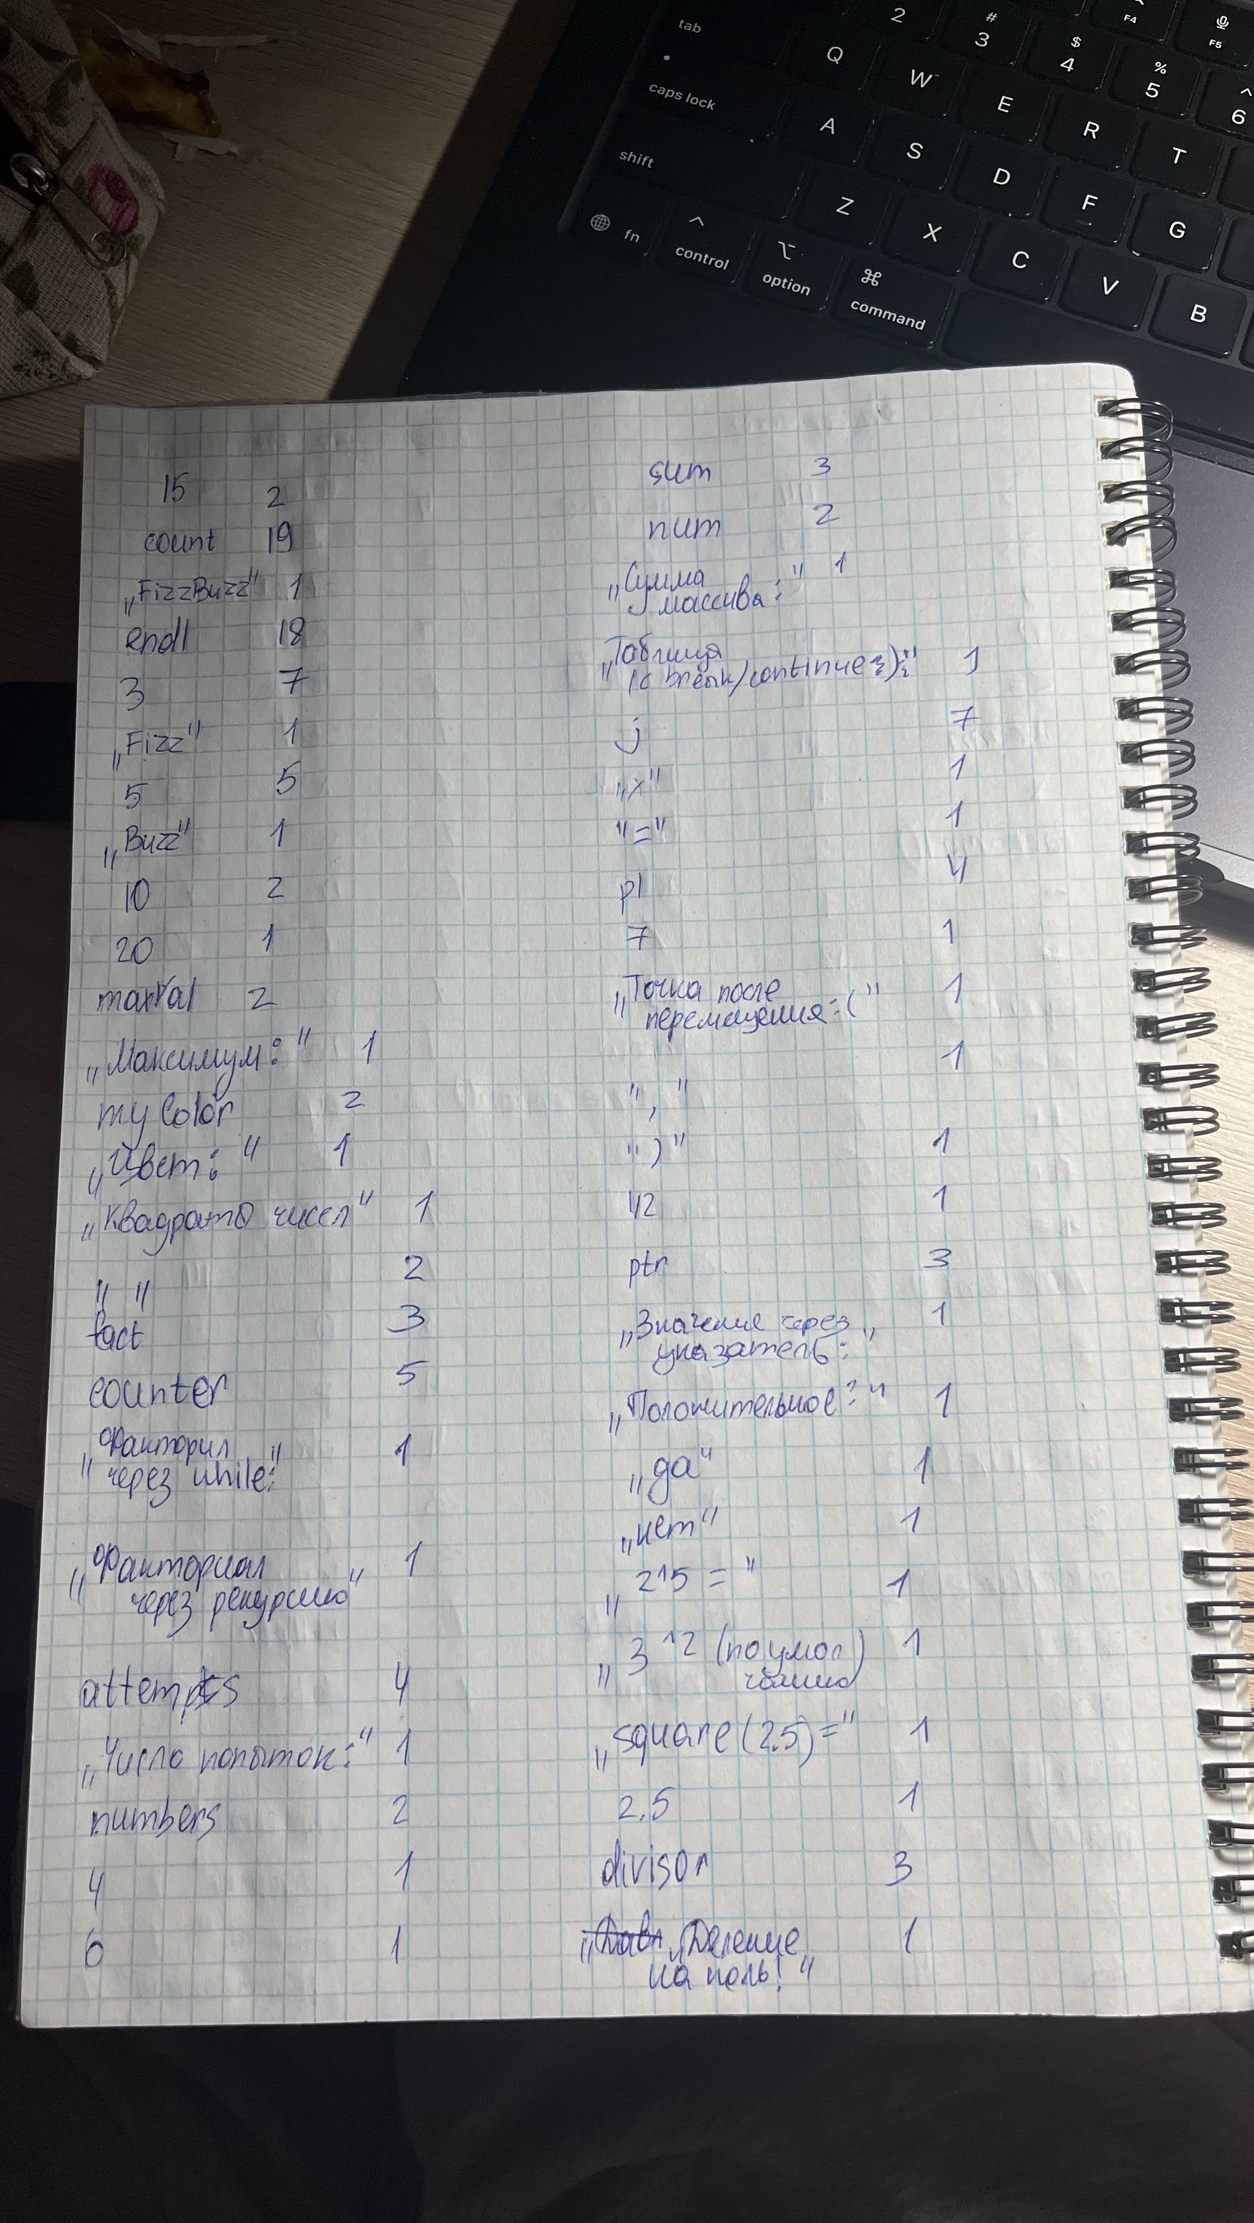 tab
caps lock
shift
fn
control
option
command
2
#
3
$
4
%
5
^
6
F4
F5
Q
W
E
R
T
A
S
D
F
G
Z
X
C
V
B
15 2
count 19
„FizzBuzz" 1
endl 18
3 7
„Fizz" 1
5 5
„Buzz" 1
10 2
20 1
maxVal 2
„Максимум: " 1
myColor 2
„Цвет: " 1
„Квадраты чисел" 1
" " 2
fact 3
counter 5
„Факторил
через while:" 1
„Факториал
через рекурсию" 1
attempts 4
„Число попыток:" 1
numbers 2
4 1
6 1
sum 3
num 2
„Сумма
массива: " 1
„Таблица
(с break/continue): " 1
j 7
„x" 1
"=" 1
p1 4
7 1
„Точка после
перемещения: ( " 1
", " 1
")" 1
42 1
ptr 3
„Значение через
указатель: „ 1
„Положительное? " 1
„да" 1
„нет" 1
„ 2^5 = " 1
„ 3^2 (по умол)
чанию 1
„square (2.5) = " 1
2.5 1
divisor 3
„Деление
на ноль! " 1